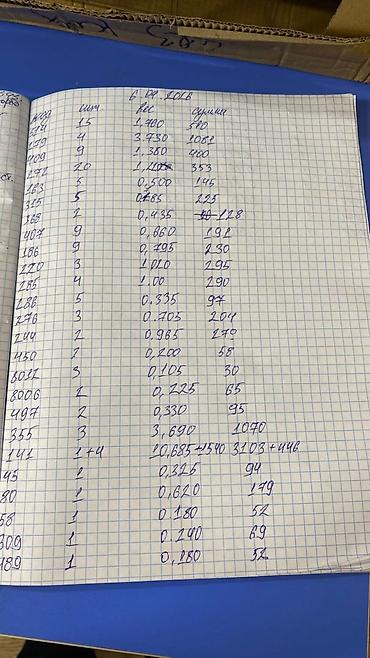 6.08.2026
код шт вес сумми
514 15 1,790 510
179 4 3.730 1081
409 9 1,380 400
272 20 353
163 5 0,500 145
315 5 225
368 2 0,435 128
407 9 0,660 191
186 9 0,795 230
220 3 1.020 295
285 4 1.00 290
286 5 0.335 97
276 3 0.705 204
244 2 0,965 279
450 2 0,200 58
8022 3 0,105 30
8006 2 0,225 65
497 2 0,330 95
355 3 3,690 1070
141 1+4 10,685+1540 3103+446
45 1 0,325 94
80 1 0,620 179
58 1 0.180 52
309 1 0.240 69
489 1 0,180 52